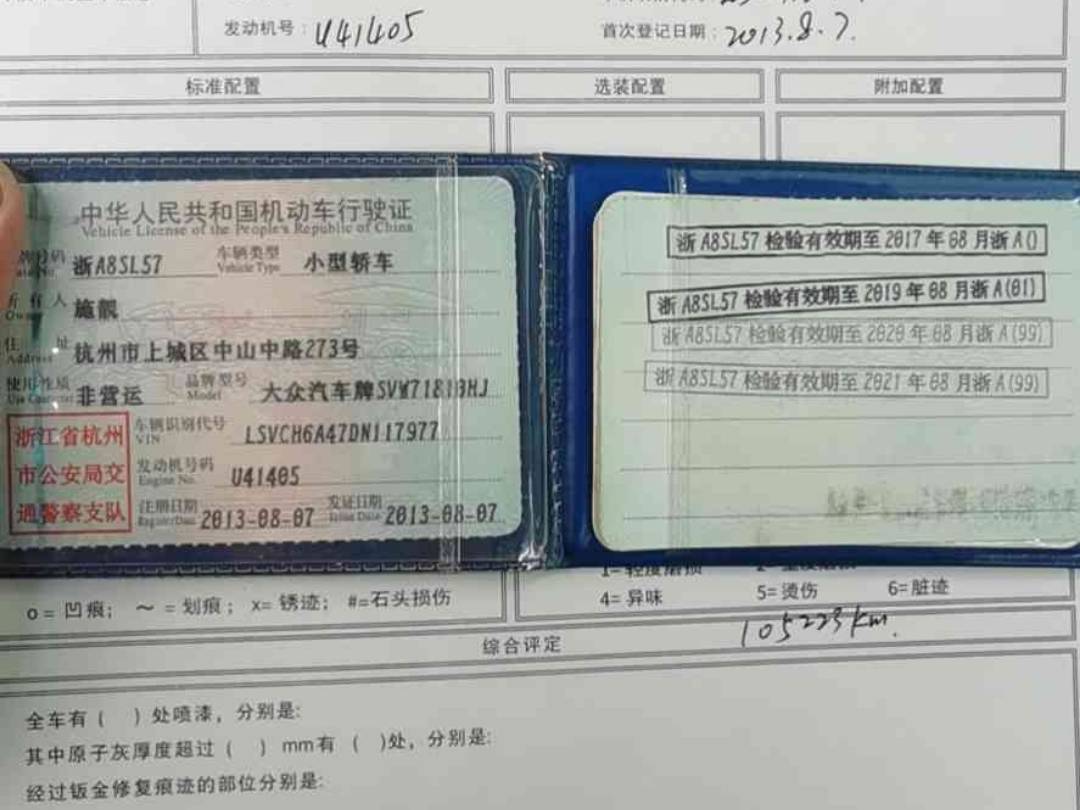 发动机号：U41405
首次登记日期：2013.8.7.
标准配置
选装配置
附加配置
中华人民共和国机动车行驶证
Vehicle License of the People's Republic of China
号码 浙A8SL57 车辆类型 Vehicle Type 小型轿车
所有人 施靓
Owner
住址 杭州市上城区中山中路273号
Address
使用性质 非营运 品牌型号 Model 大众汽车牌SVW71810HJ
Use Character
浙江省杭州市公安局交通警察支队
车辆识别代号 VIN LSVCH6A47DN117977
发动机号码 Engine No. U41405
注册日期 Register Date 2013-08-07 发证日期 Issue Date 2013-08-07
浙A8SL57 检验有效期至 2017年08月浙A()
浙A8SL57 检验有效期至 2019年08月浙A(01)
浙A8SL57 检验有效期至 2020年08月浙A(99)
浙A8SL57 检验有效期至 2021年08月浙A(99)
o=凹痕； ～=划痕； x=锈迹； #=石头损伤
1=轻度磨损
4=异味 5=烫伤 6=脏迹
综合评定
105223km.
全车有（ ）处喷漆，分别是:
其中原子灰厚度超过（ ）mm有（ )处，分别是:
经过钣金修复痕迹的部位分别是: